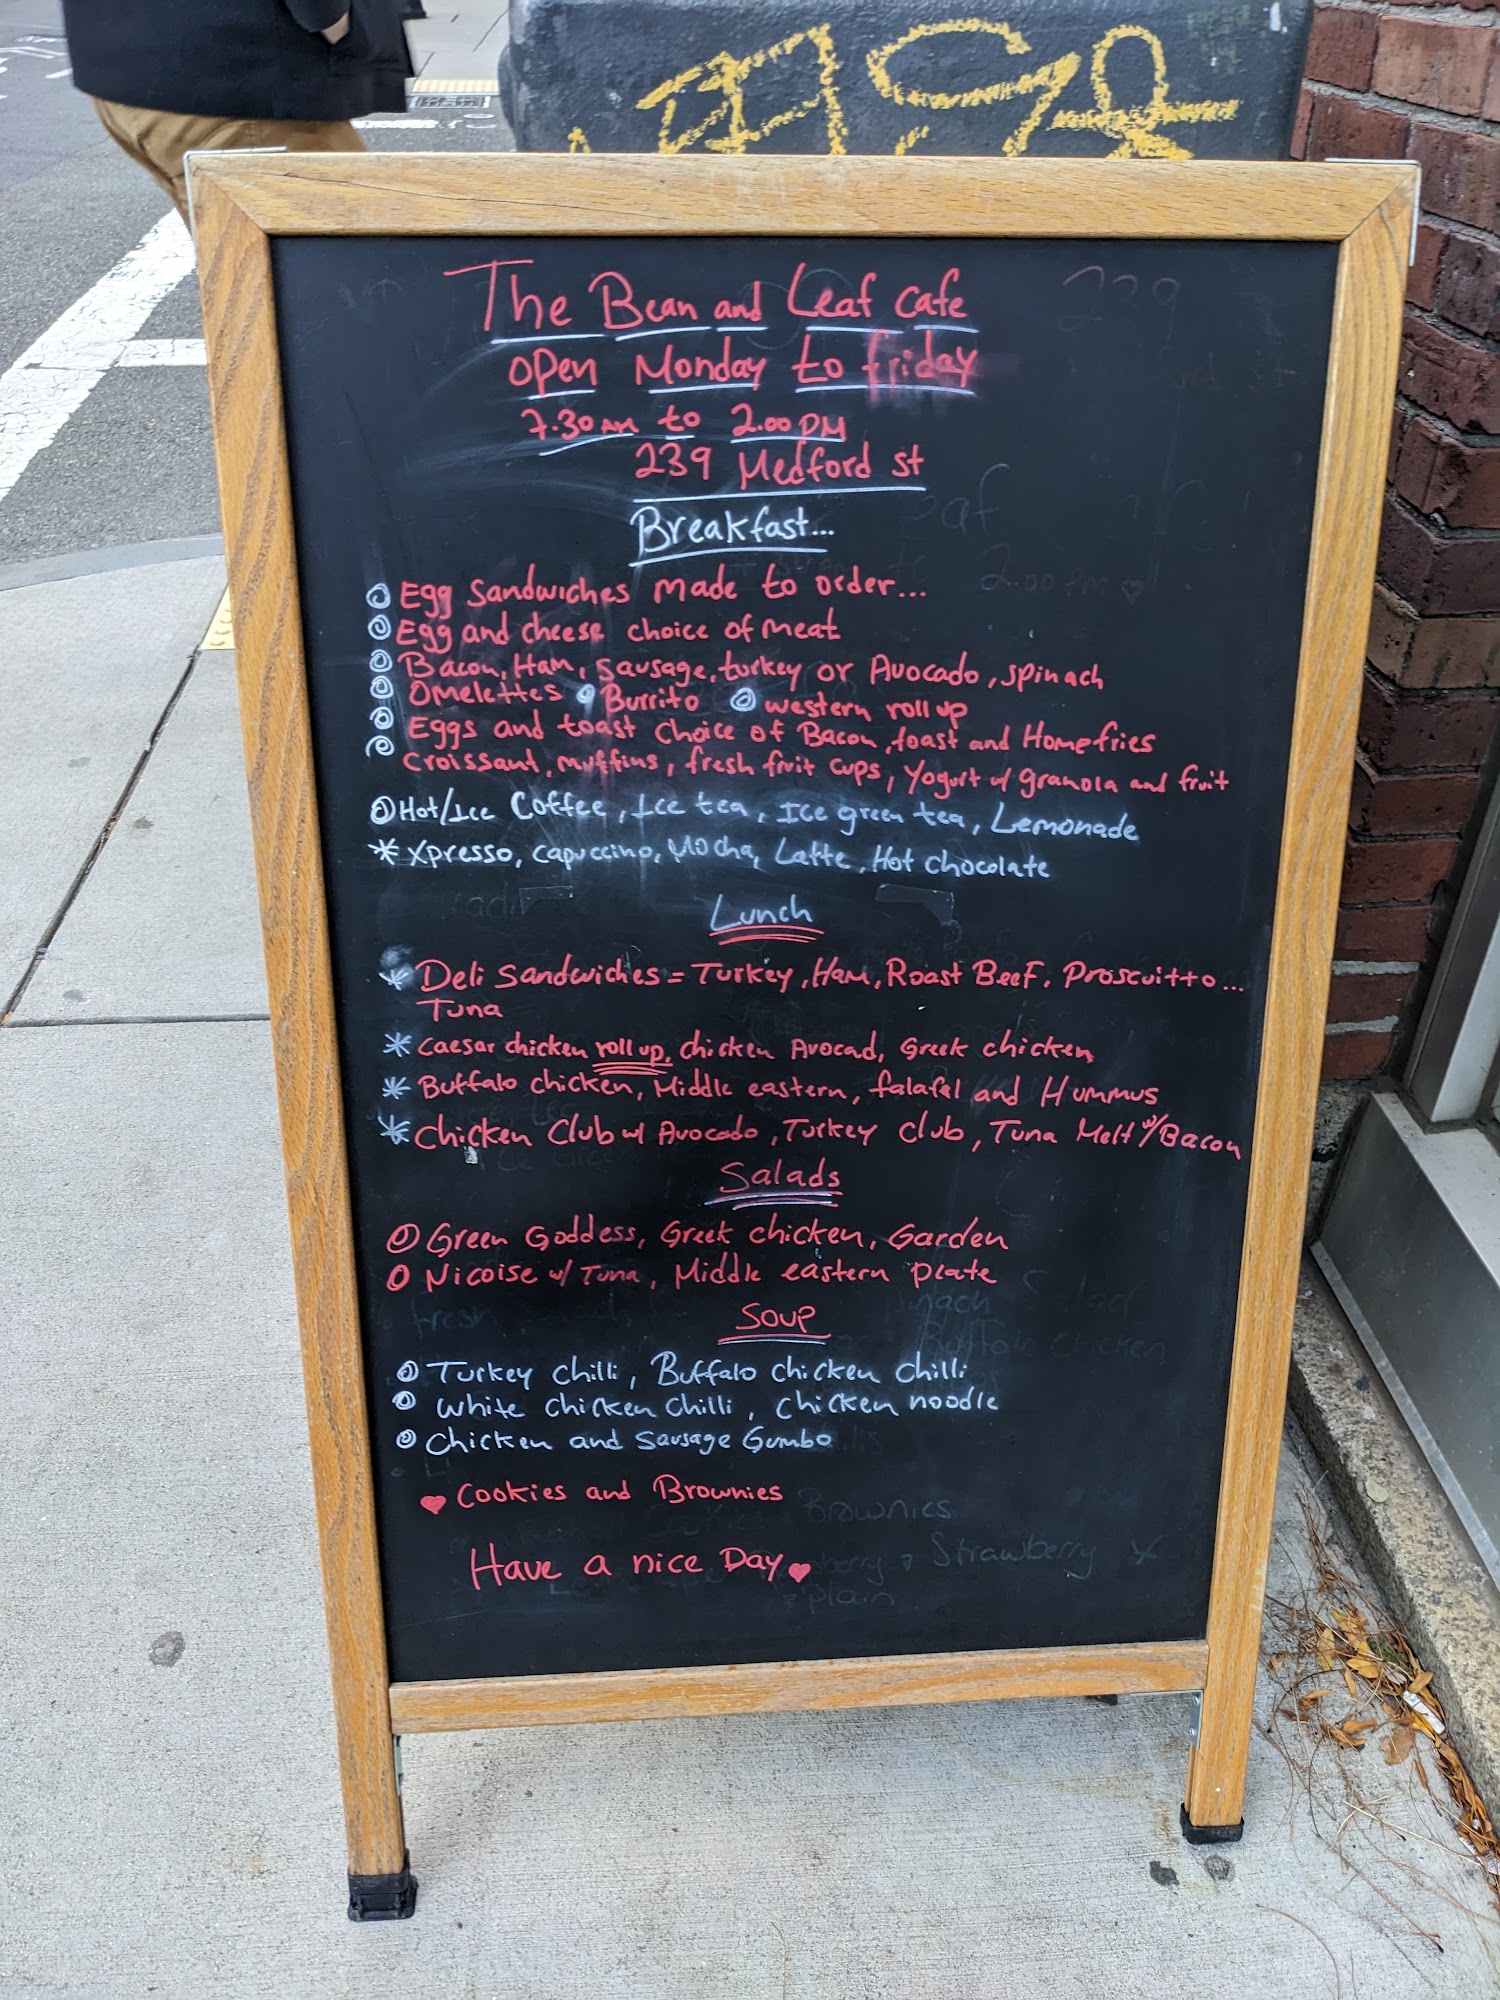 The Bean and Leaf cafe
open Monday to friday
7.30 AM to 2.00 PM
239 Medford st
Breakfast...
Egg Sandwiches made to order...
Egg and cheese choice of meat
Bacon, Ham, sausage, turkey or Avocado, spinach
Omelettes Burrito western roll up
Eggs and toast choice of Bacon, toast and Homefries
Croissant, muffins, fresh fruit cups, Yogurt w/ granola and fruit
Hot/Ice Coffee, Ice tea, Ice green tea, Lemonade
* Xpresso, capuccino, Mocha, Latte, Hot chocolate
Lunch
* Deli Sandwiches = Turkey, Ham, Roast Beef, Proscuitto...
Tuna
* Caesar chicken roll up, chicken Avocad, Greek chicken
* Buffalo chicken, Middle eastern, falafel and Hummus
* Chicken Club w/ Avocado, Turkey Club, Tuna Melt w/Bacon
Salads
Green Goddess, Greek chicken, Garden
Nicoise w/ Tuna, Middle eastern plate
Soup
Turkey chilli, Buffalo chicken chilli
white chicken chilli, chicken noodle
Chicken and Sausage Gumbo
♥ Cookies and Brownies
Have a nice Day ♥